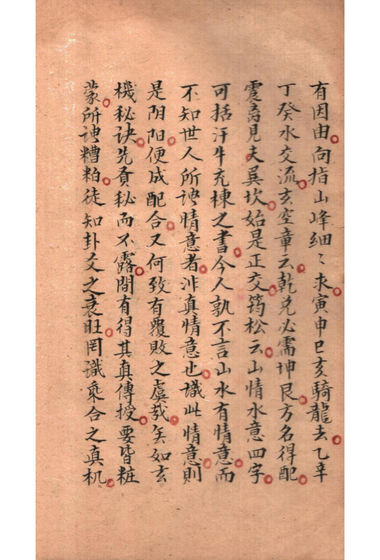 有因由向指山峰細〻求寅申巳亥騎龍去乙辛
丁癸水交流玄空章云乾兌必需坤艮方名得配
震离見夫巽坎始是正交筠松云山情水意四字
可括汗牛充棟之書今人孰不言山水有情意而
不知世人所説情意者非真情意也識此情意則
是阴阳便成配合又何致有覆敗之虞哉矣如玄
機秘诀先賁秘而不露間有得其真傳授要皆粧
蒙所説糟粕徒知卦爻之衰旺罔識乘合之真机